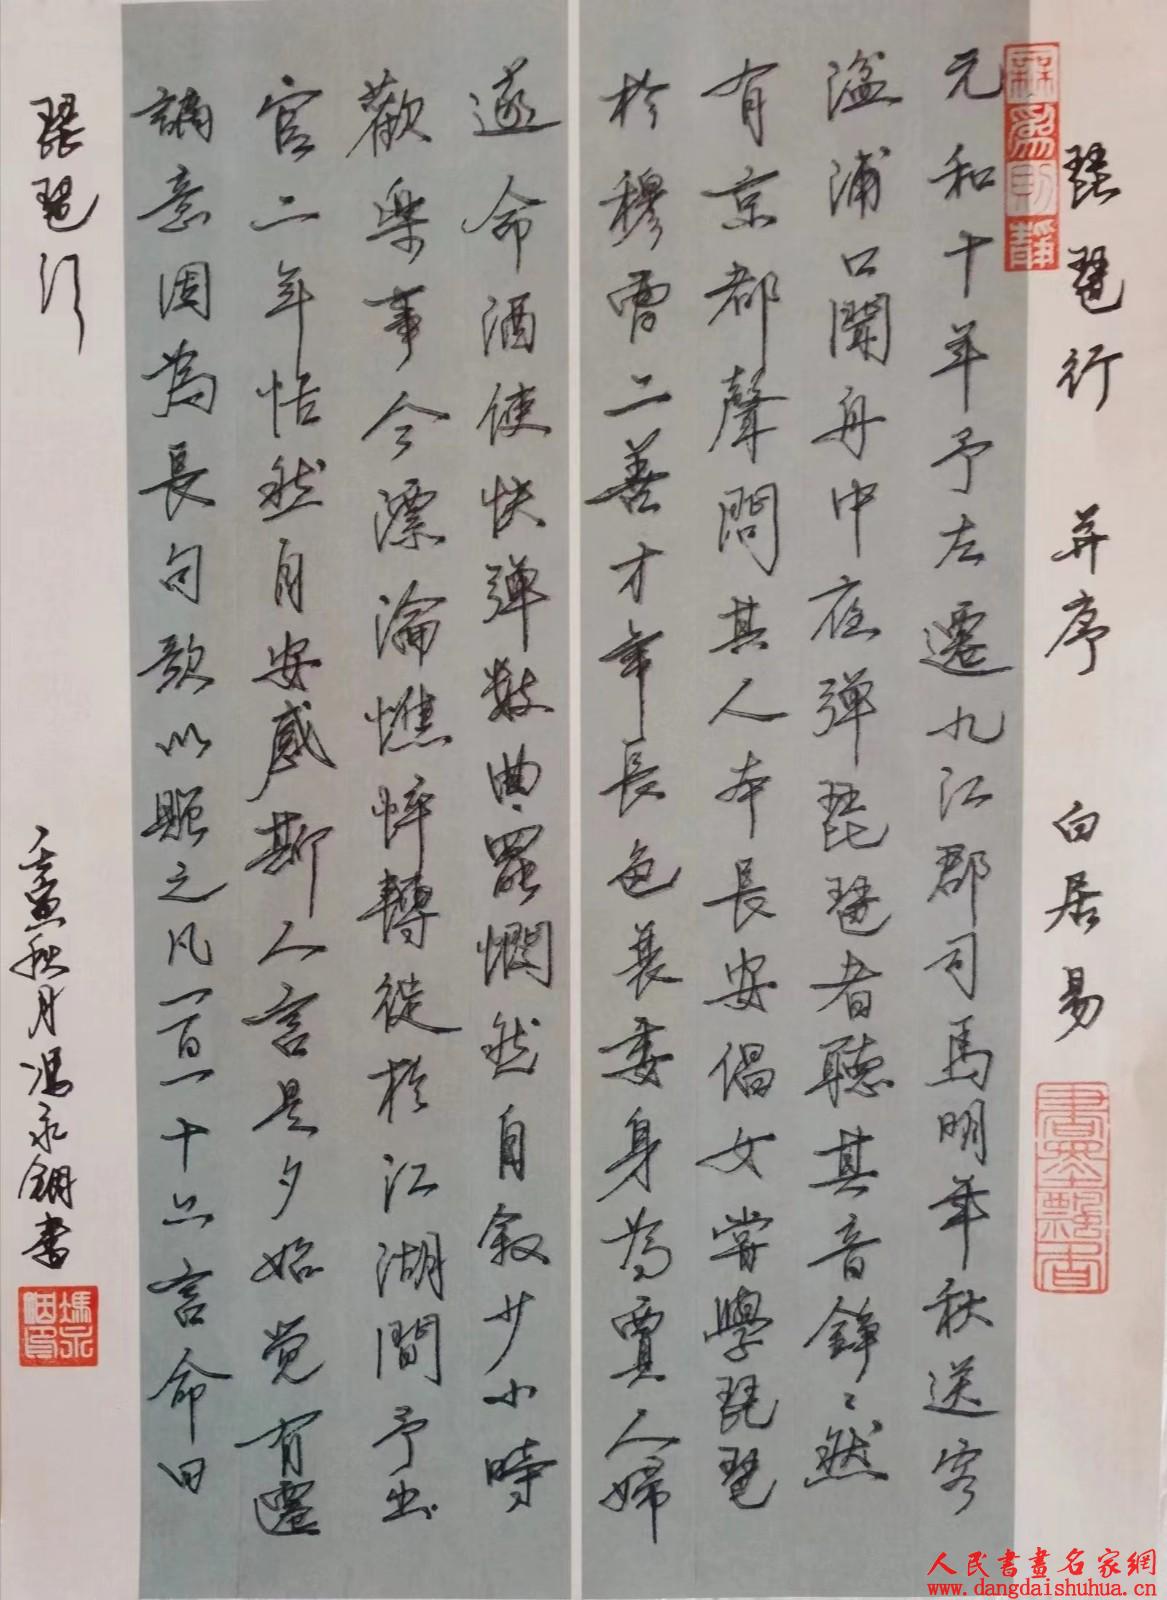 琵琶行 并序 白居易
元和十年予左遷九江郡司馬明年秋送客
湓浦口聞舟中夜弹琵琶者聽其音錚〻然
有京都聲問其人本長安倡女嘗學琵琶
於穆曹二善才年長色衰委身為賈人婦
遂命酒使快弹數曲〻罷憫然自叙少小時
歡樂事今漂淪憔悴轉徙於江湖間予出
官二年恬然自安感斯人言是夕始覺有遷
謫意因為長句歌以贈之凡一百一十六言命曰
琵琶行
壬寅秋月馮永鋼書
書墨飄香
人民書畫名家網
www.dangdaishuhua.cn